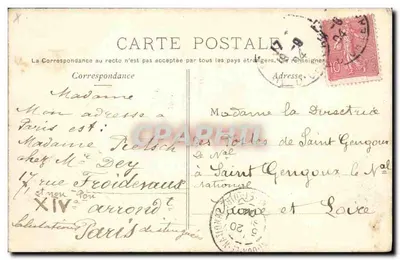 CARTE POSTALE
La Correspondance au recto n'est pas acceptée par tous les pays étrangers.
Correspondance
Adresse
Madame
Mon adresse à
Paris est:
Madame
chez Mr Dey
17 rue Froidevaux
et non 90
XIVe arrondt
Salutations distinguées
Paris
Madame la Directrice
des Postes de Saint Gengoux
le Nal
à Saint Gengoux le Nal
national
Saône et Loire